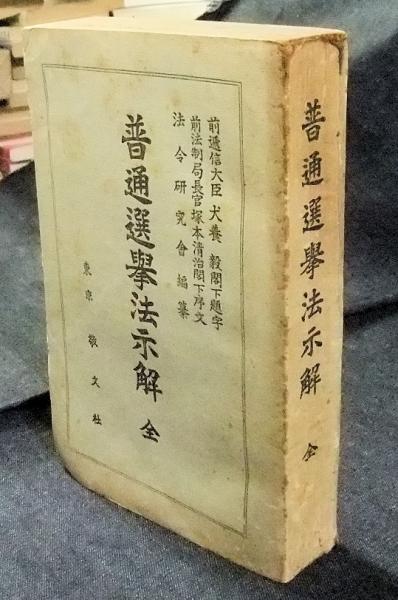 前遞信大臣 犬養 毅閣下題字
前法制局長官 塚本清治閣下序文
法令研究會編纂
普通選擧法示解 全
東京 敬文社
普通選擧法示解 全